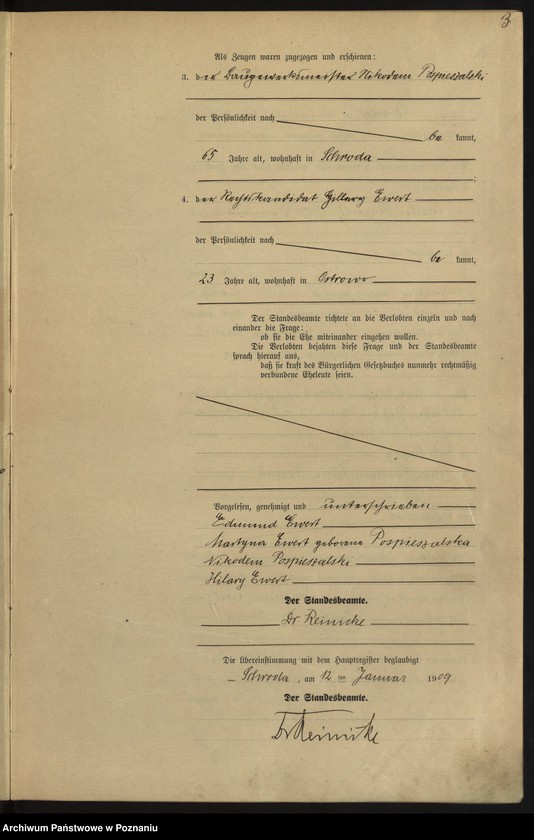 3
Als Zeugen waren zugezogen und erschienen:
3. der Baugewerksmeister Nikodem Pospieszalski
der Persönlichkeit nach
be kannt,
65 Jahre alt, wohnhaft in Schroda
;
4. der Rechtskandidat Hillary Ewert
der Persönlichkeit nach
be kannt,
23 Jahre alt, wohnhaft in Ostrowo
Der Standesbeamte richtete an die Verlobten einzeln und nach
einander die Frage:
ob sie die Ehe miteinander eingehen wollen.
Die Verlobten bejahten diese Frage und der Standesbeamte
sprach hierauf aus,
daß sie kraft des Bürgerlichen Gesetzbuches nunmehr rechtmäßig
verbundene Eheleute seien.
Vorgelesen, genehmigt und unterschrieben
Edmund Ewert
Martyna Ewert geborene Pospieszalska
Nikodem Pospieszalski
Hilary Ewert
Der Standesbeamte.
Dr Reinicke
Die Übereinstimmung mit dem Hauptregister beglaubigt
Schroda, am 12 ten Januar 1909
Der Standesbeamte.
Dr Reinicke
Archiwum Państwowe w Poznaniu